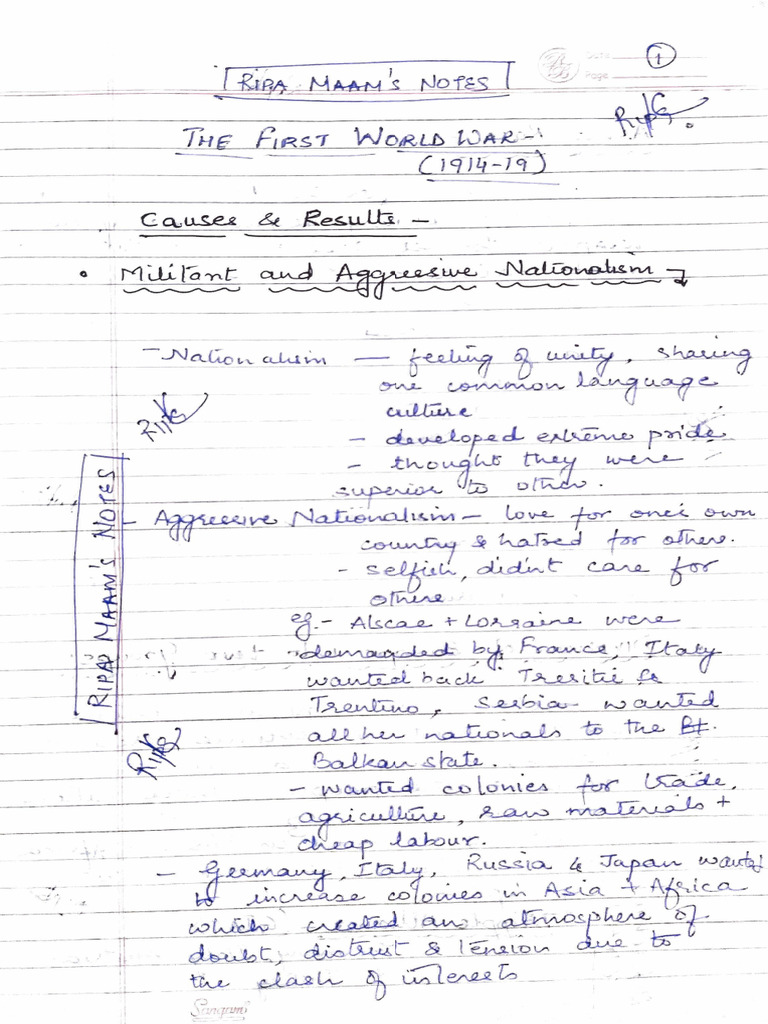 Date
Page
1
RIPA MAAM'S NOTES
THE FIRST WORLD WAR -
(1914-19)
Causes & Results -
• Militant and Aggressive Nationalism
- Nationalism — feeling of unity, sharing
one common language
culture
- developed extreme pride
- thought they were
superior to other.
RIPA MAAM'S NOTES
- Aggressive Nationalism - love for one's own
country & hatred for others.
- selfish, didn't care for
others
eg. - Alscae + Lorraine were
demanded by France, Italy
wanted back Tresitie &
Trentino, Serbia wanted
all her nationals to the
Balkan state.
- wanted colonies for trade,
agriculture, raw materials +
cheap labour.
- Germany, Italy, Russia & Japan wanted
to increase colonies in Asia + Africa
which created an atmosphere of
doubt, distrust & tension due to
the clash of interests
Sangam